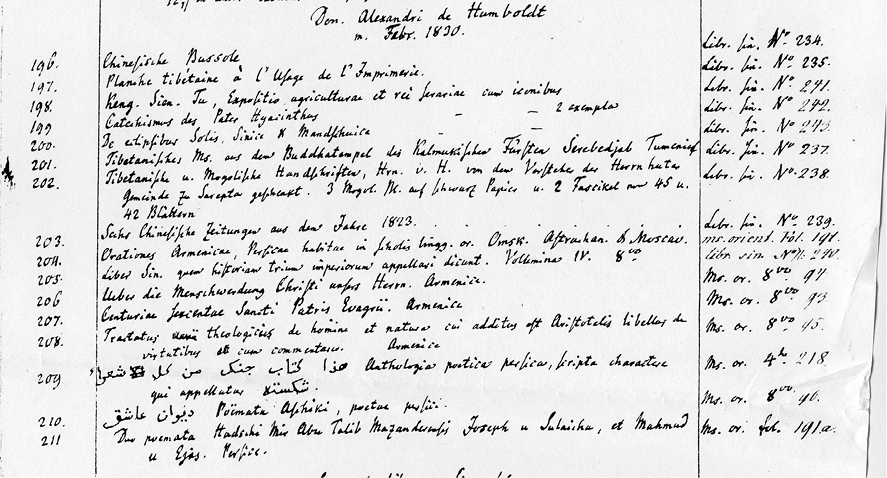 Don. Alexandri de Humboldt
m. Febr. 1830.
196. Chinesische Bussole Libr. sin. No. 234.
197. Planche tibétaine à l'Usage de l'Imprimerie. Libr. sin. No. 235.
198. Keng. Sien. Tu, Expositio agriculturae et rei serariae cum iconibus Libr. sin. No. 241.
199 Catechismus des Pater Hyacinthus – – 2 exempla Libr. sin. No. 242.
200. De eclipsibus Solis, Sinice & Mandschuice Libr. sin. No. 243.
201. Tibetanisches Ms. aus dem Buddhatempel des Kalmukischen Fürsten Serebedjab Tumenief Libr. sin. No. 237.
202. Tibetanische u. Mogolische Handschriften, Hrn. v. H. von dem Vorsteher der Herrnhuter Libr. sin. No. 238.
Gemeinde zu Sarepta geschenkt. 3 Mogol. M. auf schwarz Papier u. 2 Fascikel von 45 u.
42 Blättern
203. Sechs Chinesische Zeitungen aus dem Jahre 1823. Libr. sin. No. 239.
204. Orationes Armenicae, Persicae habitae in scholis lingg. or. Omsk. Astrachan. & Moscav. ms. orient. fol. 191.
205. Liber Sin. quem historiam trium imperiorum appellari dicunt. Volumina IV. 8vo libr. sin. No. 240.
206 Ueber die Menschwerdung Christi unsers Herrn. Armenice. Ms. or. 8vo 94.
207. Centuriae sexcentae Sancti Patris Evagrii. Armenice Ms. or. 8vo 93.
208. Tractatus theologicus de homine et natura cui additus est Aristotelis libellus de Ms. or. 8vo 95.
virtutibus cum commentario. Armenice
209 هذا كتاب جنك من كل اشعار Anthologia poetica persica, scripta charactere Ms. or. 4to 218.
qui appellatur شكسته.
210. ديوان عاشق Poëmata Aschiki, poetae persici. Ms. or. 8vo 40.
211 Duo poemata Hadschi Mir Abu Talib Mazanderensis Joseph u Suleicha, et Mahmud Ms. or. fol. 191a.
u Ejas. Persice.